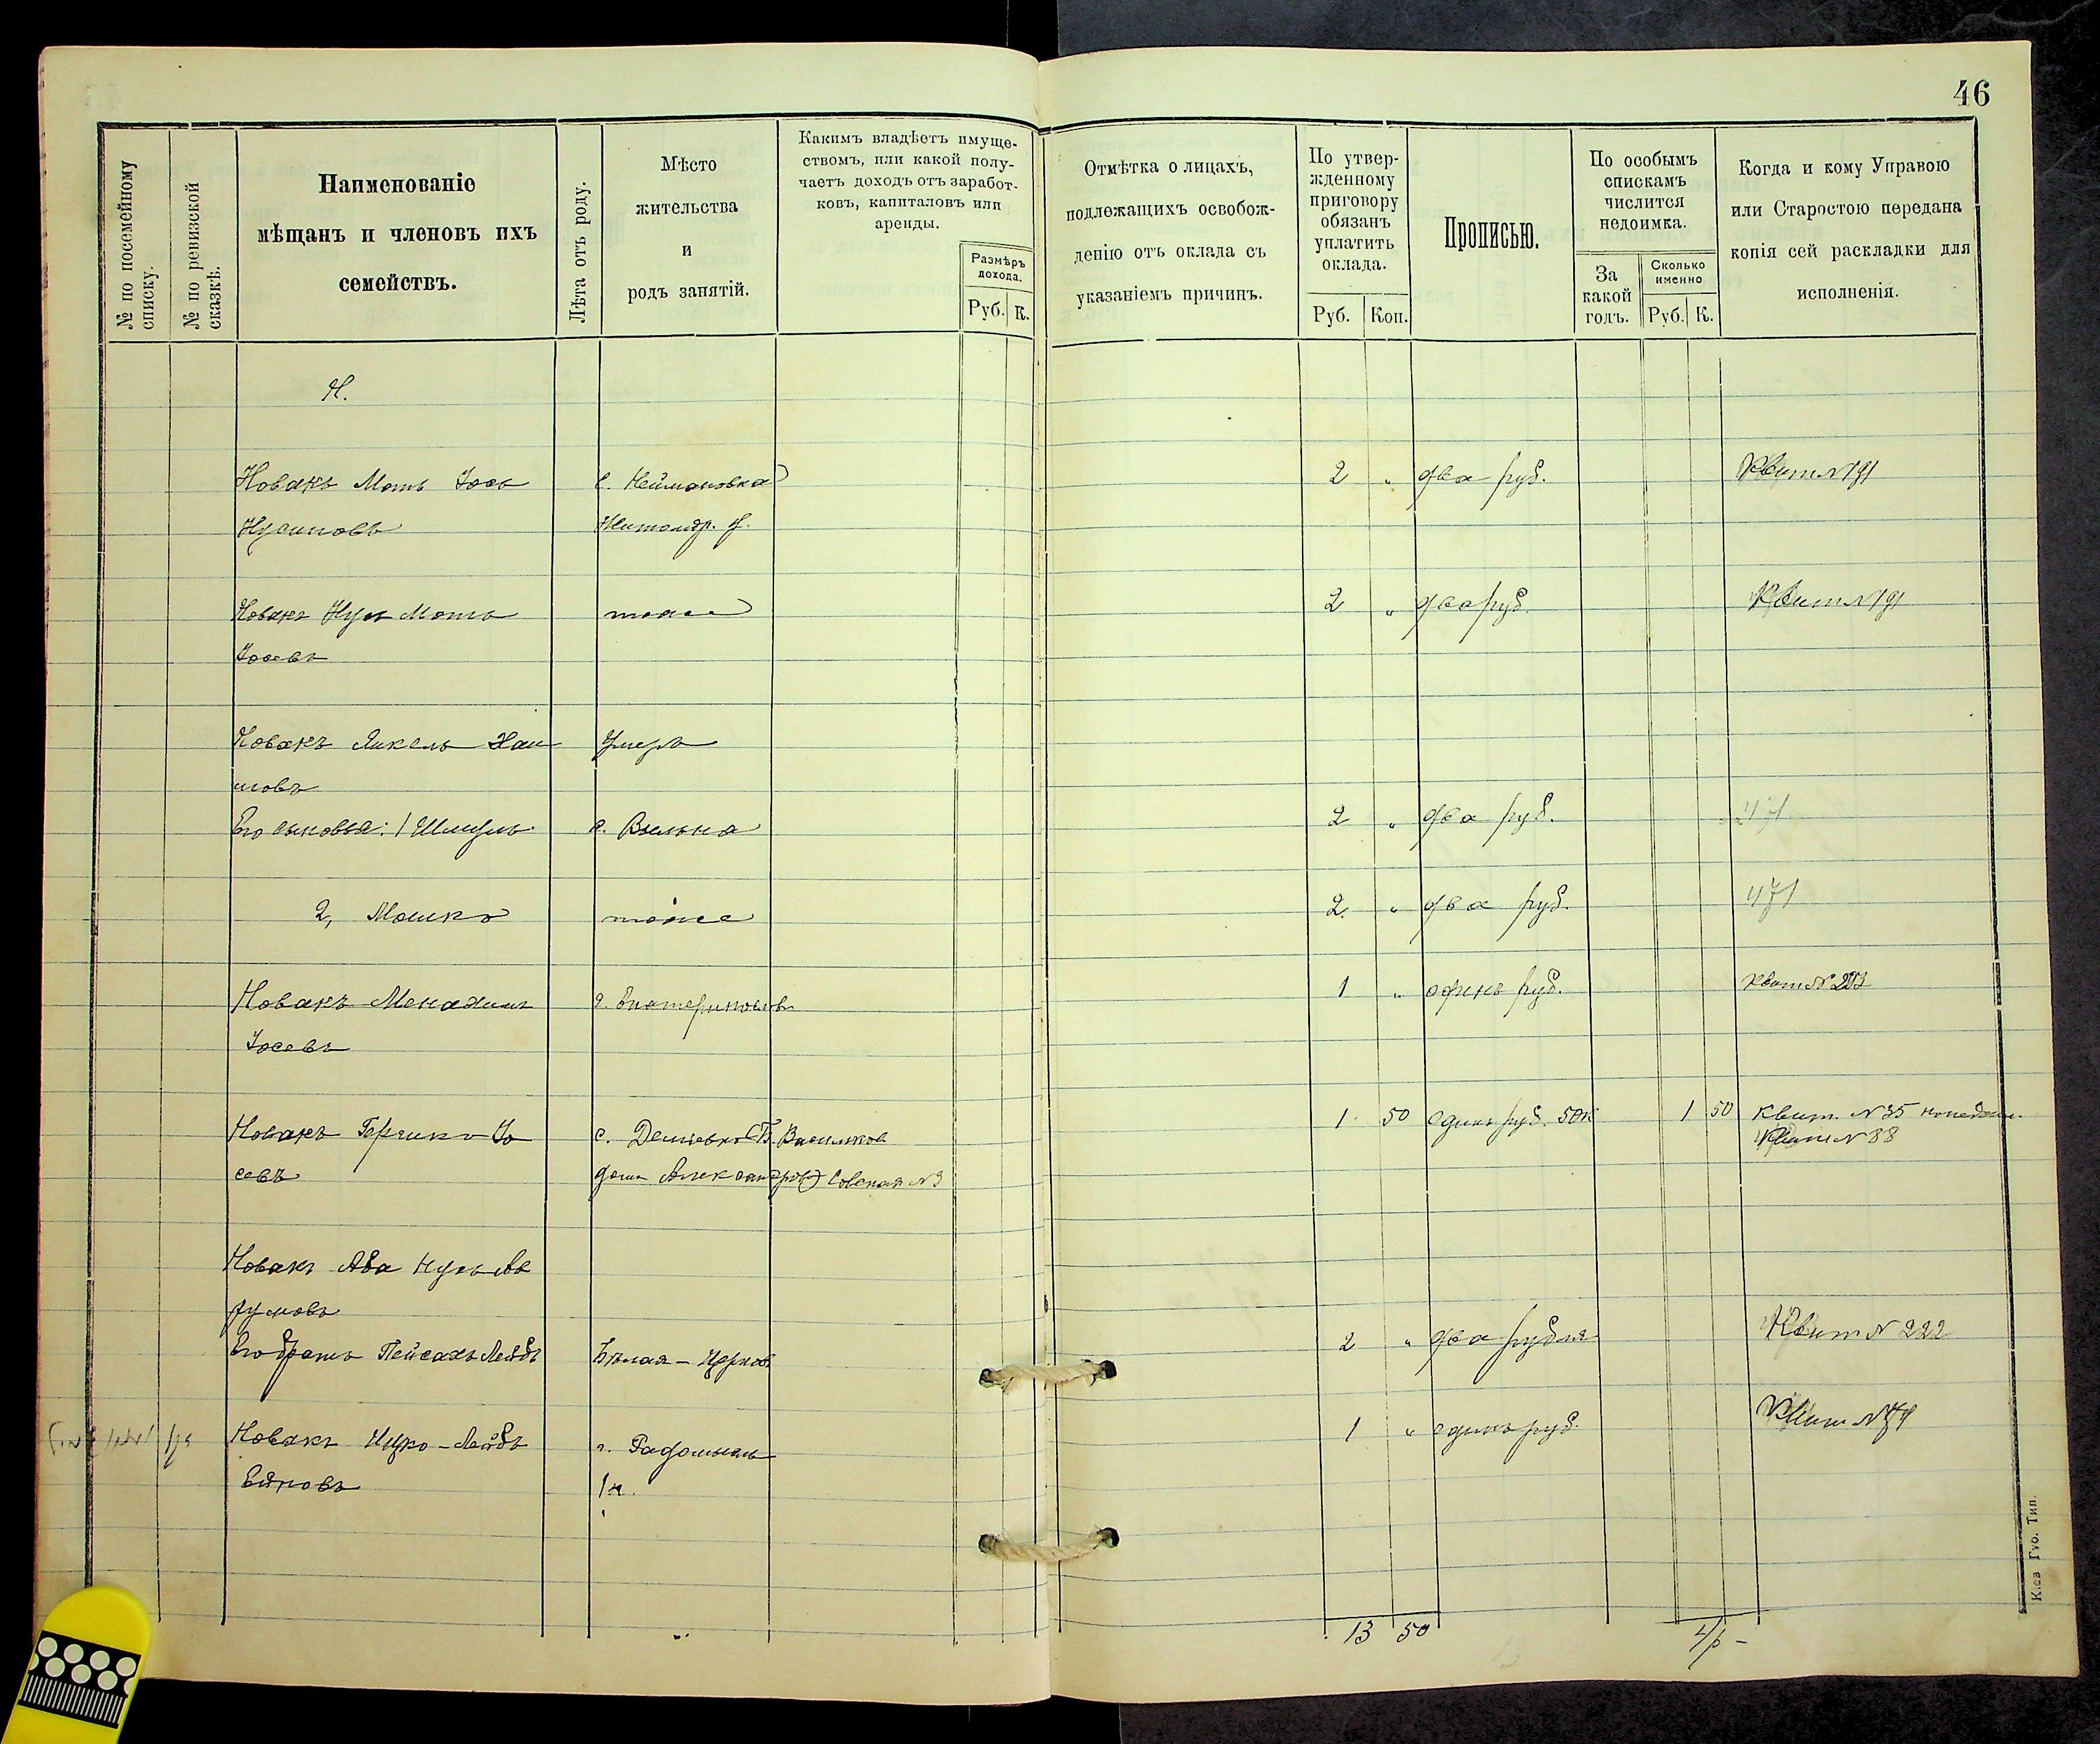 46
№ по посемейному списку.
№ по ревизской сказкѣ.
Наименованіе
мѣщанъ и членовъ ихъ
семействъ.
Лѣта отъ роду.
Мѣсто
жительства
и
родъ занятій.
Какимъ владѣетъ имуще-
ствомъ, или какой полу-
чаетъ доходъ отъ заработ-
ковъ, капиталовъ или
аренды.
Размѣръ
дохода.
Руб. К.
Отмѣтка о лицахъ,
подлежащихъ освобож-
денію отъ оклада съ
указаніемъ причинъ.
По утвер-
жденному
приговору
обязанъ
уплатить
оклада.
Руб. Коп.
Прописью.
По особымъ
спискамъ
числится
недоимка.
За
какой
годъ.
Сколько
именно
Руб. К.
Когда и кому Управою
или Старостою передана
копія сей раскладки для
исполненія.
Н.
Новакъ Моть Іось с. Неймановка 2 " два руб. Квит №191
Нусиновъ Житомір. у.
Новакъ Нусь Моть тоже 2 " два руб. Квит №191
Іосевъ
Новакъ Янкель Хаи- Умеръ
мовъ
Его сыновья: 1 Шмуль с. Вильна 2 " два руб. 471
2, Мошко тоже 2 " два руб. 471
Новакъ Менахимъ г. Екатеринославъ 1 " одинъ руб. Квит №
Іосевъ
Новакъ Гершко Іо- с. Б. Васильков 1 50 Одинъ руб. 50 к 1 50 Квит. №35
севъ домъ Александров №3 Квит №88
Новакъ Аба Нусь Ав
румовъ
Его братъ Пейсахъ Лейбъ Бѣлая-Церковь 2 " два рубля Квит № 222
Новакъ Ицко-Лейбъ г. Радомысль 1 " Одинъ руб. Квит №
13 50
Кіев Губ. Тип.